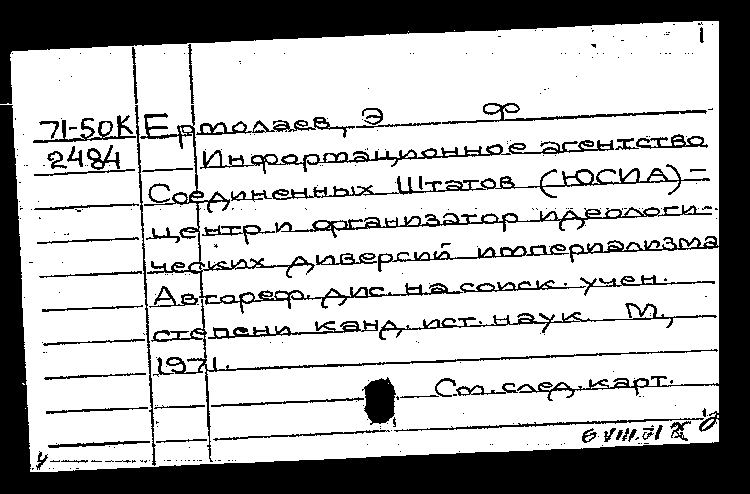 1
71-50К Ермолаев, Э Ф
2484 Информационное агентство
Соединенных Штатов (ЮСИА) –
центр и организатор идеологи-
ческих диверсий империализма
Автореф. дис. на соиск. учен.
степени канд. ист. наук М.,
1971.
См. след. карт.
6 VIII.71